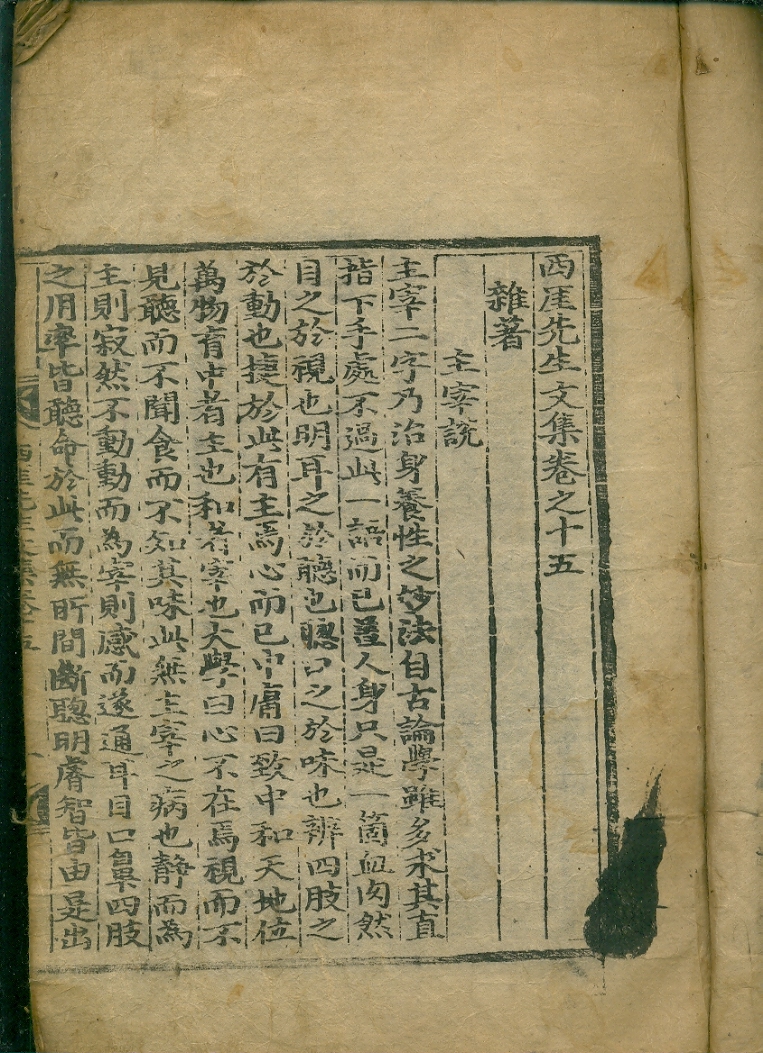 西厓先生文集卷之十五
雜著
主宰說
主宰二字乃治身養性之妙法自古論學雖多求其直
指下手處不過此一語而已蓋人身只是一箇血肉然
目之於視也明耳之於聽也聰口之於味也辨四肢之
於動也捷於此有主焉心而已中庸曰致中和天地位
萬物育中者主也和者宰也大學曰心不在焉視而不
見聽而不聞食而不知其味此無主宰之病也靜而爲
主則寂然不動動而為宰則感而遂通耳目口鼻四肢
之用率皆聽命於此而無所間斷聰明睿智皆由是出
西厓先生文集卷十五